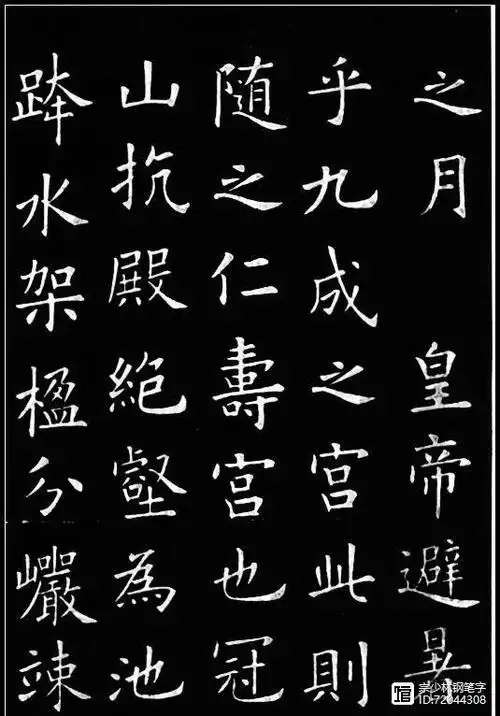 之月 皇帝避暑
乎九成之宫此則
随之仁壽宫也冠
山抗殿絕壑為池
跨水架楹分巖竦
少林钢笔字
ID:72044308